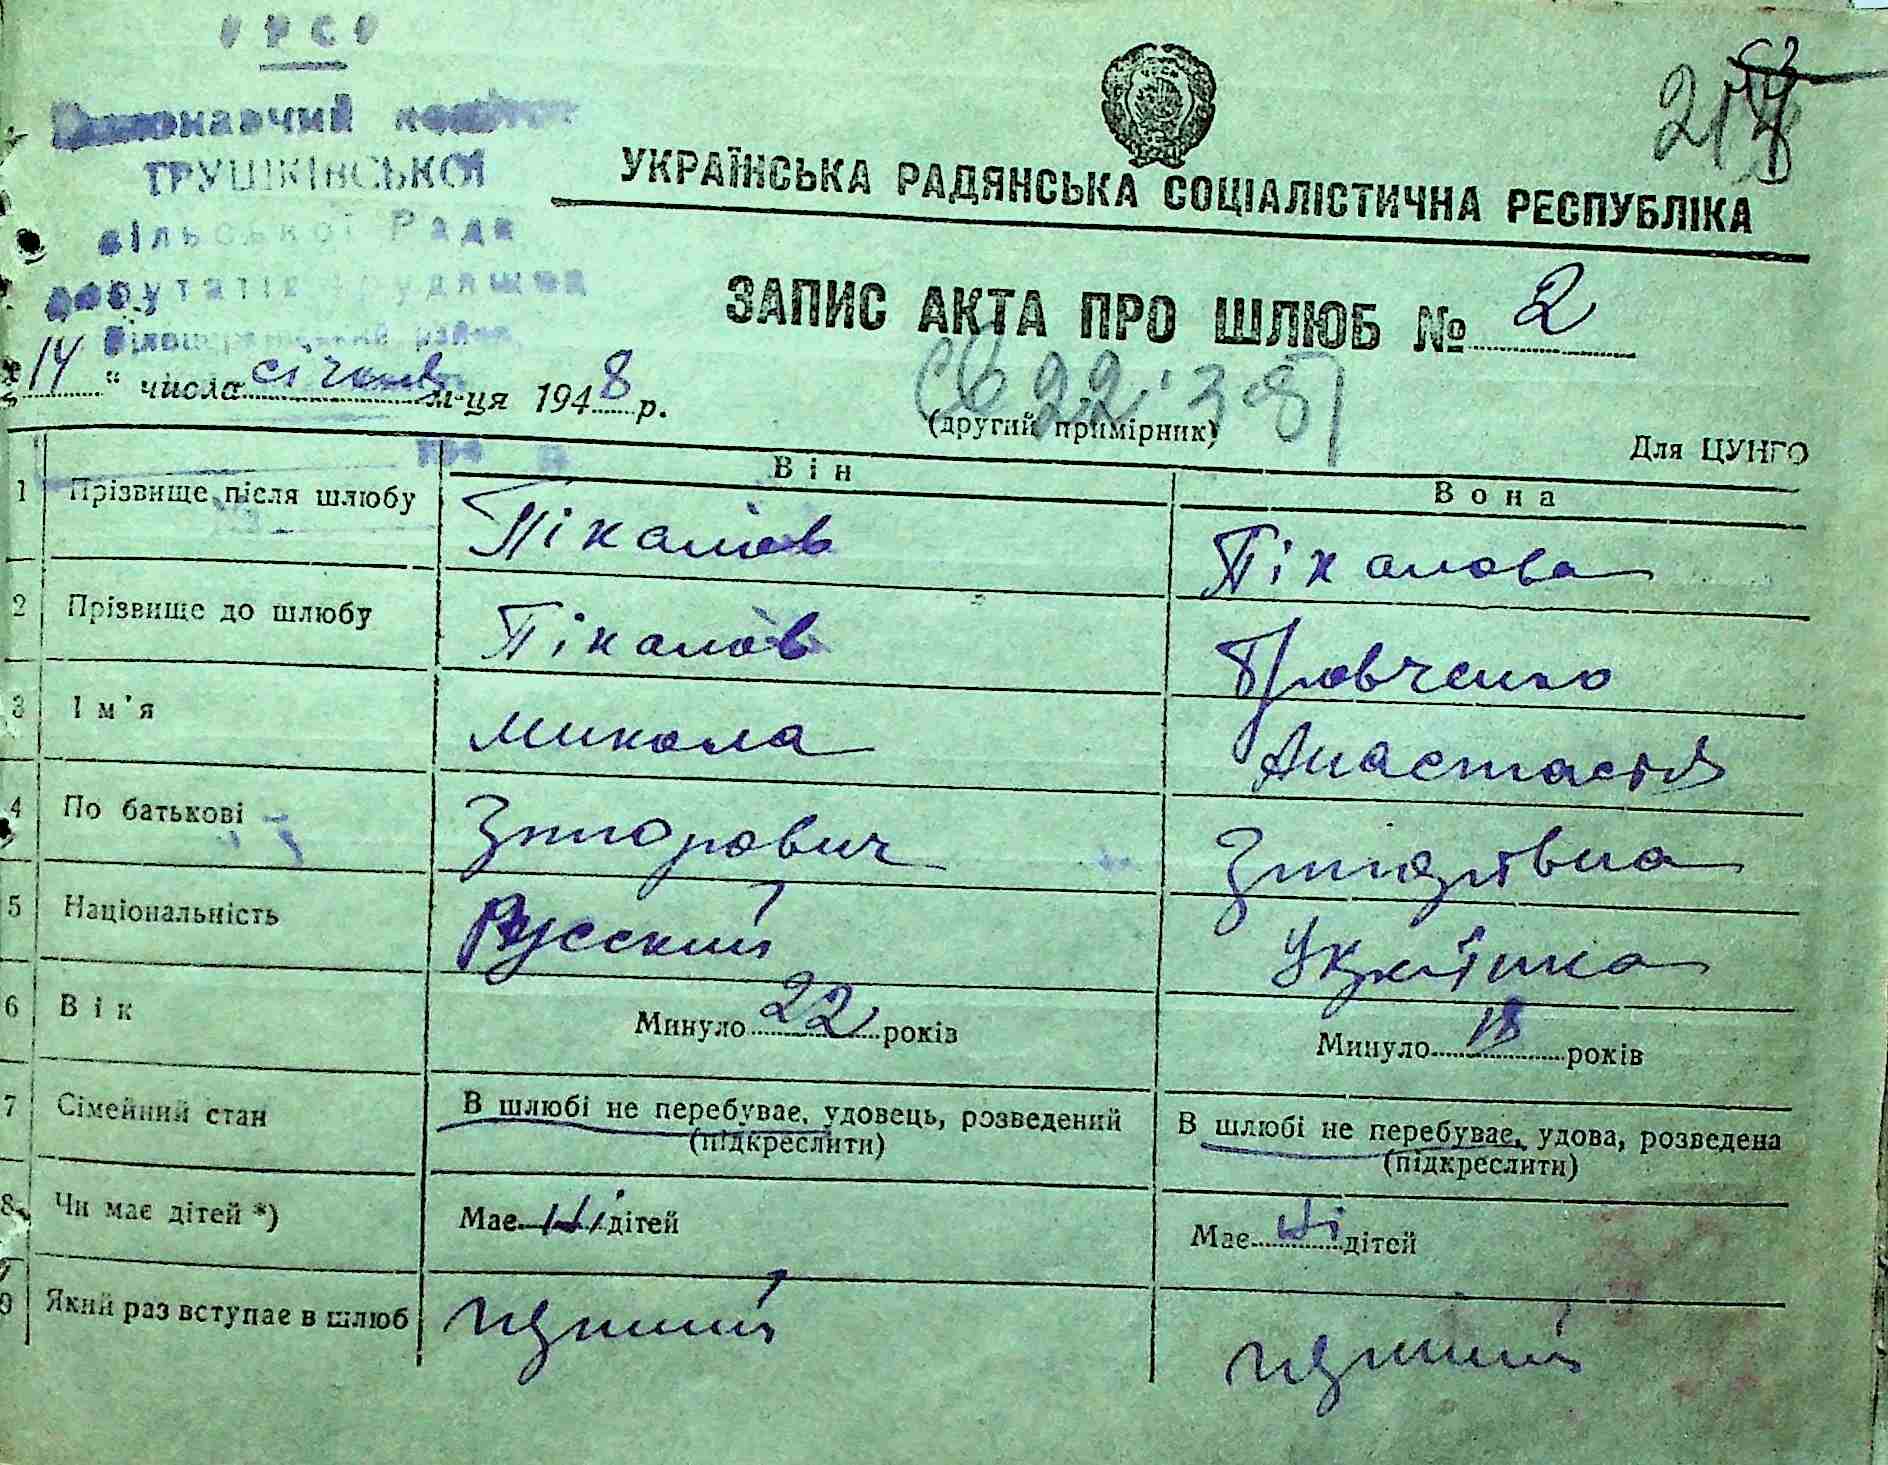 УРСР
Виконавчий комітет
ТРУШКІВСЬКОЇ
сільської Ради
депутатів трудящих
УКРАЇНСЬКА РАДЯНСЬКА СОЦІАЛІСТИЧНА РЕСПУБЛІКА
ЗАПИС АКТА ПРО ШЛЮБ № 2
14 " числа січня м-ця 1948 р.
(другий примірник)
Для ЦУНГО
Він
Вона
1 Прізвище після шлюбу Пікалов Пікалова
2 Прізвище до шлюбу Пікалов
3 Ім'я Микола Анастасія
4 По батькові
5 Національність Русский Українка
6 Вік Минуло 22 років Минуло 18 років
7 Сімейний стан В шлюбі не перебуває, удовець, розведений В шлюбі не перебуває, удова, розведена
(підкреслити) (підкреслити)
8 Чи має дітей *) Має ні дітей Має ні дітей
9 Який раз вступає в шлюб перший перший